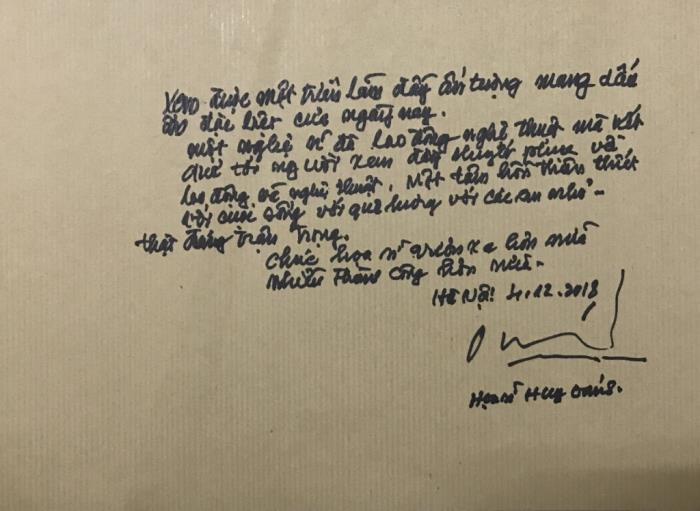 Xem được một triển lãm đầy ấn tượng mang dấu
ấn đặc biệt của ngày nay.
một nghệ sĩ đã lao động nghệ thuật mà kết
quả tới người xem đầy thuyết phục về
lao động về nghệ thuật. Một tâm hồn thân thiết
với cuộc sống với quê hương với các em nhỏ -
thật đáng trân trọng.
Chúc họa sĩ vươn xa hơn nữa
nhiều thành công hơn nữa.
Hà Nội 4.12.2018
Họa sĩ Huy Oánh.